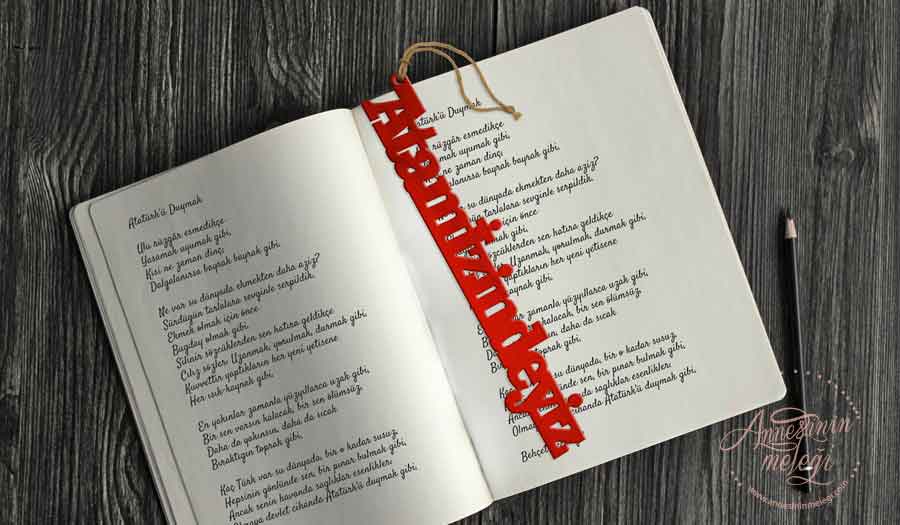 Atatürk'ü Duymak
Ulu rüzgâr esmedikçe
Yasamak uyumak gibi,
Kisi ne zaman dinç;
Dalgalanırsa bayrak bayrak gibi.
Ne var su dünyada ekmekten daha aziz?
Sürdügün tarlalara sevginle serpildik.
Ekmek olmak için önce
Bugday olmak gibi.
Silinir sözcüklerden sen hatıra geldikçe
Cılız sözler: Uzanmak, yorulmak, durmak gibi,
Kuvvettir yaptıkların her yeni yetisene
Her ısık kaynak gibi.
En yakınlar zamanla yüzyıllarca uzak gibi,
Bir sen varsın kalacak, bir sen ölümsüz.
Daha da yakınsın, daha da sıcak
Bıraktıgın toprak gibi,
Kaç Türk var su dünyada, bir o kadar susuz
Hepsinin gönlünde sen, bir pınar bulmak gibi,
Ancak senin havanda saglıklar esenlikler:
devlet cihanda Atatürk'ü duymak gibi.
Atamızın İzindeyiz
Duymak
rüzgâr esmedikçe
uyumak gibi,
ne zaman dinç;
bayrak bayrak gibi.
su dünyada ekmekten daha aziz?
tarlalara sevginle serpildik.
için önce
gibi.
sözcüklerden sen hatıra geldikçe
Uzanmak, yorulmak, durmak gibi,
yaptıkların her yeni yetisene
kaynak gibi.
zamanla yüzyıllarca uzak gibi,
kalacak, bir sen ölümsüz.
daha da sıcak
toprak gibi.
dünyada, bir o kadar susuz
sen, bir pınar bulmak gibi,
saglıklar esenlikler:
cihanda Atatürk'ü duymak gibi.
Annesinin
meleği
www.annesininmelegi.com